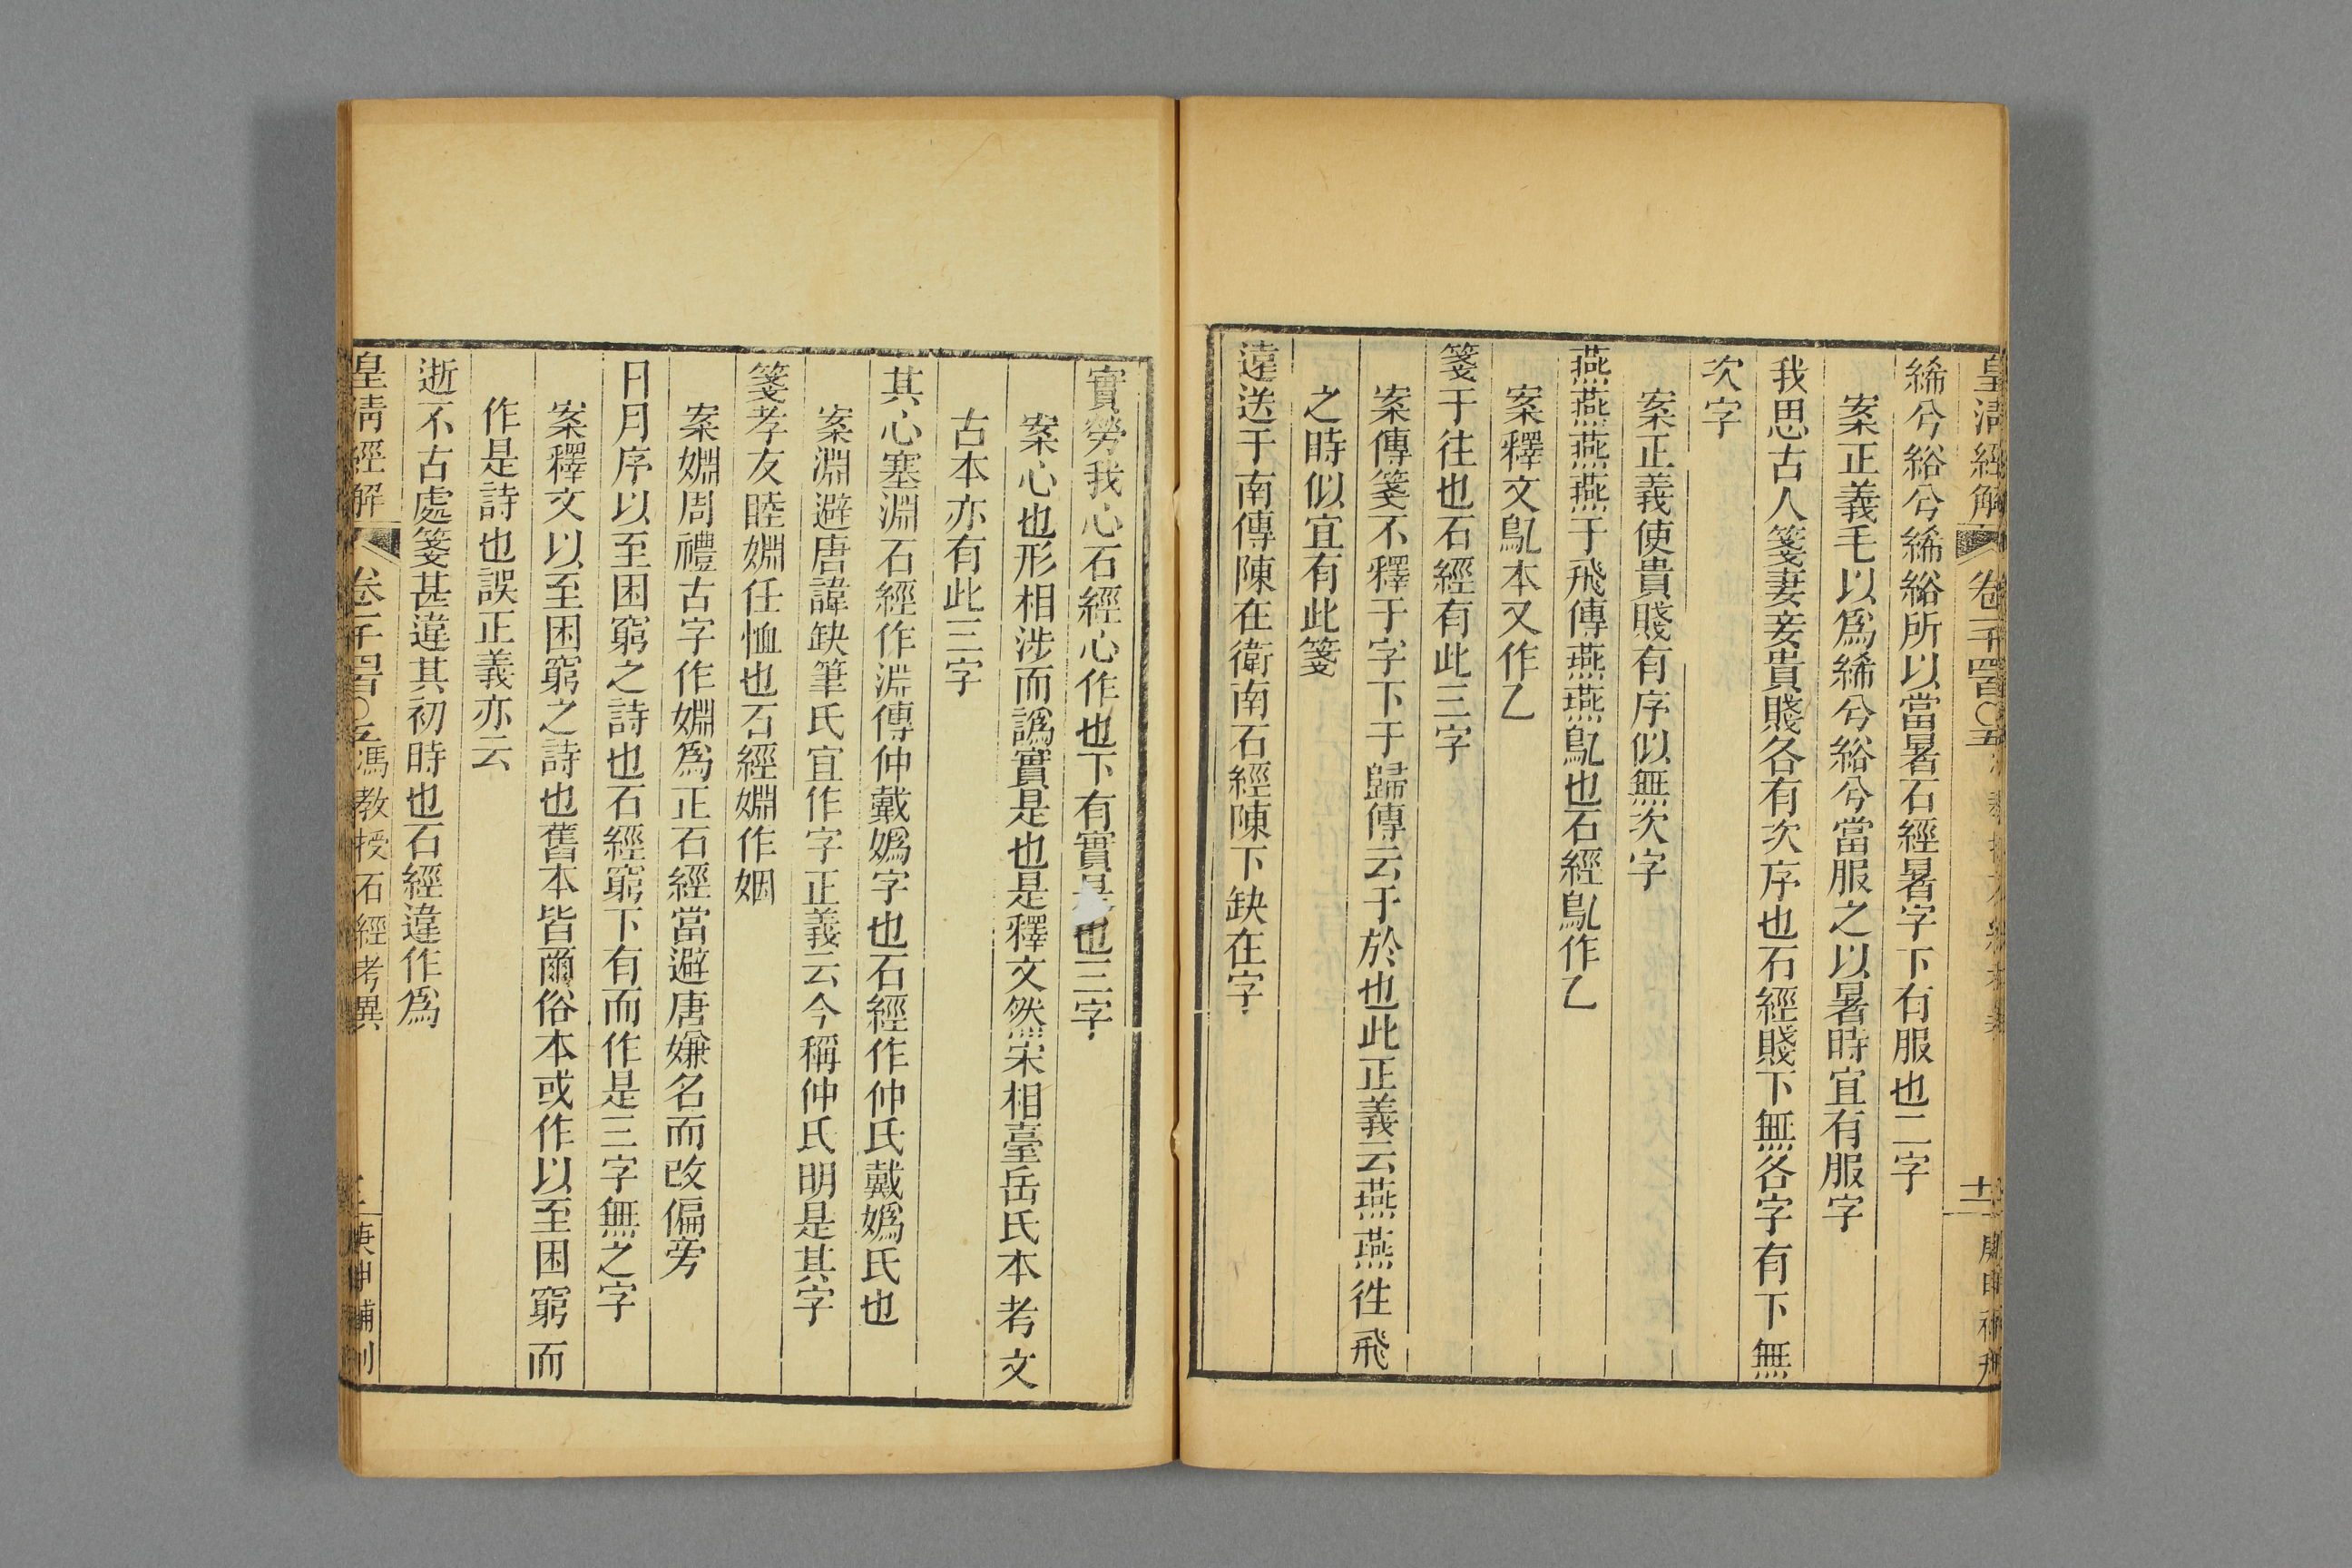 皇清經解
卷一千四百〇五
十一
庚申補刊
絺兮綌兮絺綌所以當暑石經暑字下有服也二字
案正義毛以爲絺兮綌兮當服之以暑時宜有服字
我思古人箋妻妾貴賤各有次序也石經賤下無各字有下無
次字
案正義使貴賤有序似無次字
燕燕燕燕于飛傳燕燕鳦也石經鳦作乙
案釋文鳦本又作乙
箋于往也石經有此三字
案傳箋不釋于字下于歸傳云于於也此正義云燕燕徃飛
之時似宜有此箋
遠送于南傳陳在衛南石經陳下缺在字
實勞我心石經心作也下有實是也三字
案心也形相涉而譌實是也是釋文然宋相臺岳氏本考文
古本亦有此三字
其心塞淵石經作淵傳仲戴嬀字也石經作仲氏戴嬀氏也
案淵避唐諱缺筆氏宜作字正義云今稱仲氏明是其字
箋孝友睦婣任恤也石經婣作姻
案婣周禮古字作婣爲正石經當避唐嫌名而改偏旁
日月序以至困窮之詩也石經窮下有而作是三字無之字
案釋文以至困窮之詩也舊本皆爾俗本或作以至困窮而
作是詩也誤正義亦云
逝不古處箋甚違其初時也石經違作爲
皇清經解
卷一千四百〇五
馮教授石經考異
庚申補刊